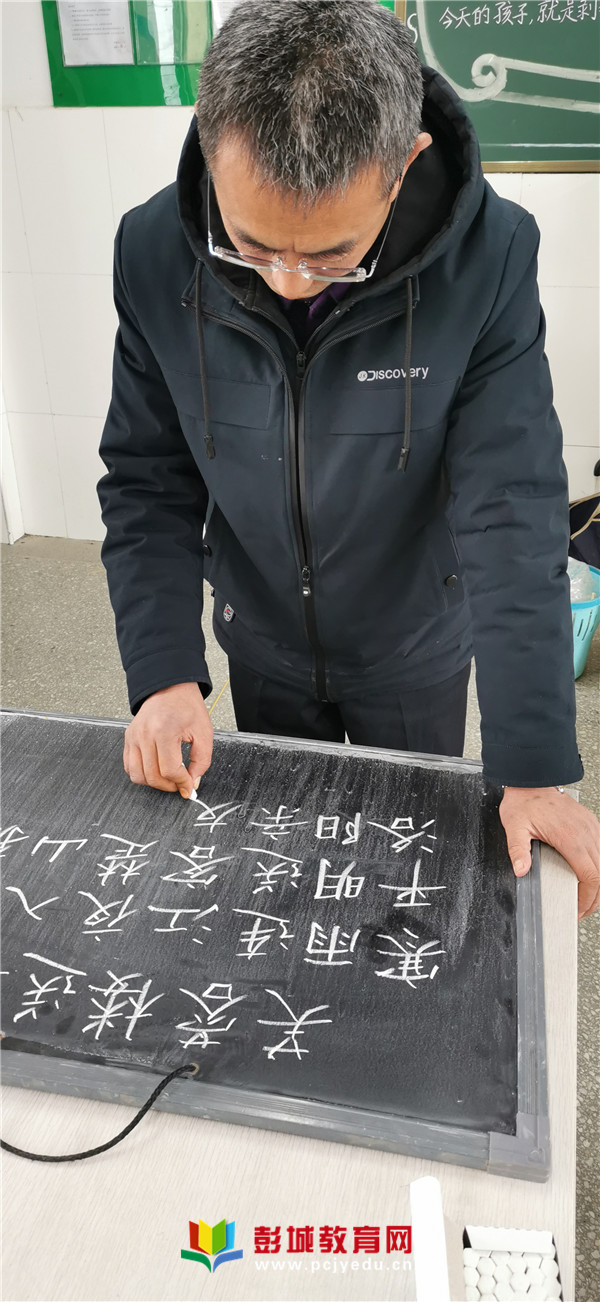 今天的孩子,就是
Discovery
芙蓉楼送
寒雨连江夜入
平明送客楚山
洛阳亲友
彭城教育网
www.pcjyedu.cn